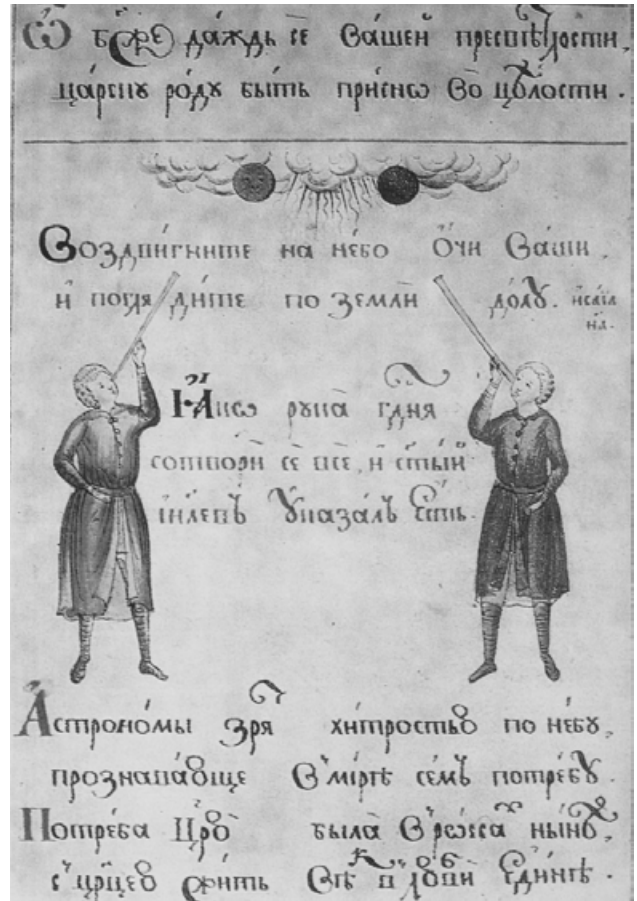 Ѿ бж҃е да́ждь се̏ ва́шей пресвѣ́тлости,
ца́рску ро́ду бы́ть при́снѡ во цѣ́лости.
Воздви́гните на не́бо о́чи ва́ши,
и погляди́те по земли̏ до́лу. иса́їа
н҃а.
Ꙗ҆́кѡ рука̏ гдⷭ҇ня
сотвори̏ се̏ все̏, и ст҃ы́й
і҆и҃левъ указа́лъ е҆́сть.
Астроно́мы зря̏ хи́тростью по не́бу,
прознава́юще в ми́рѣ се́мъ потре́бу.
Потре́ба была̏ ны́нѣ,
с жи́ть въ любви̏ еди́нѣ.